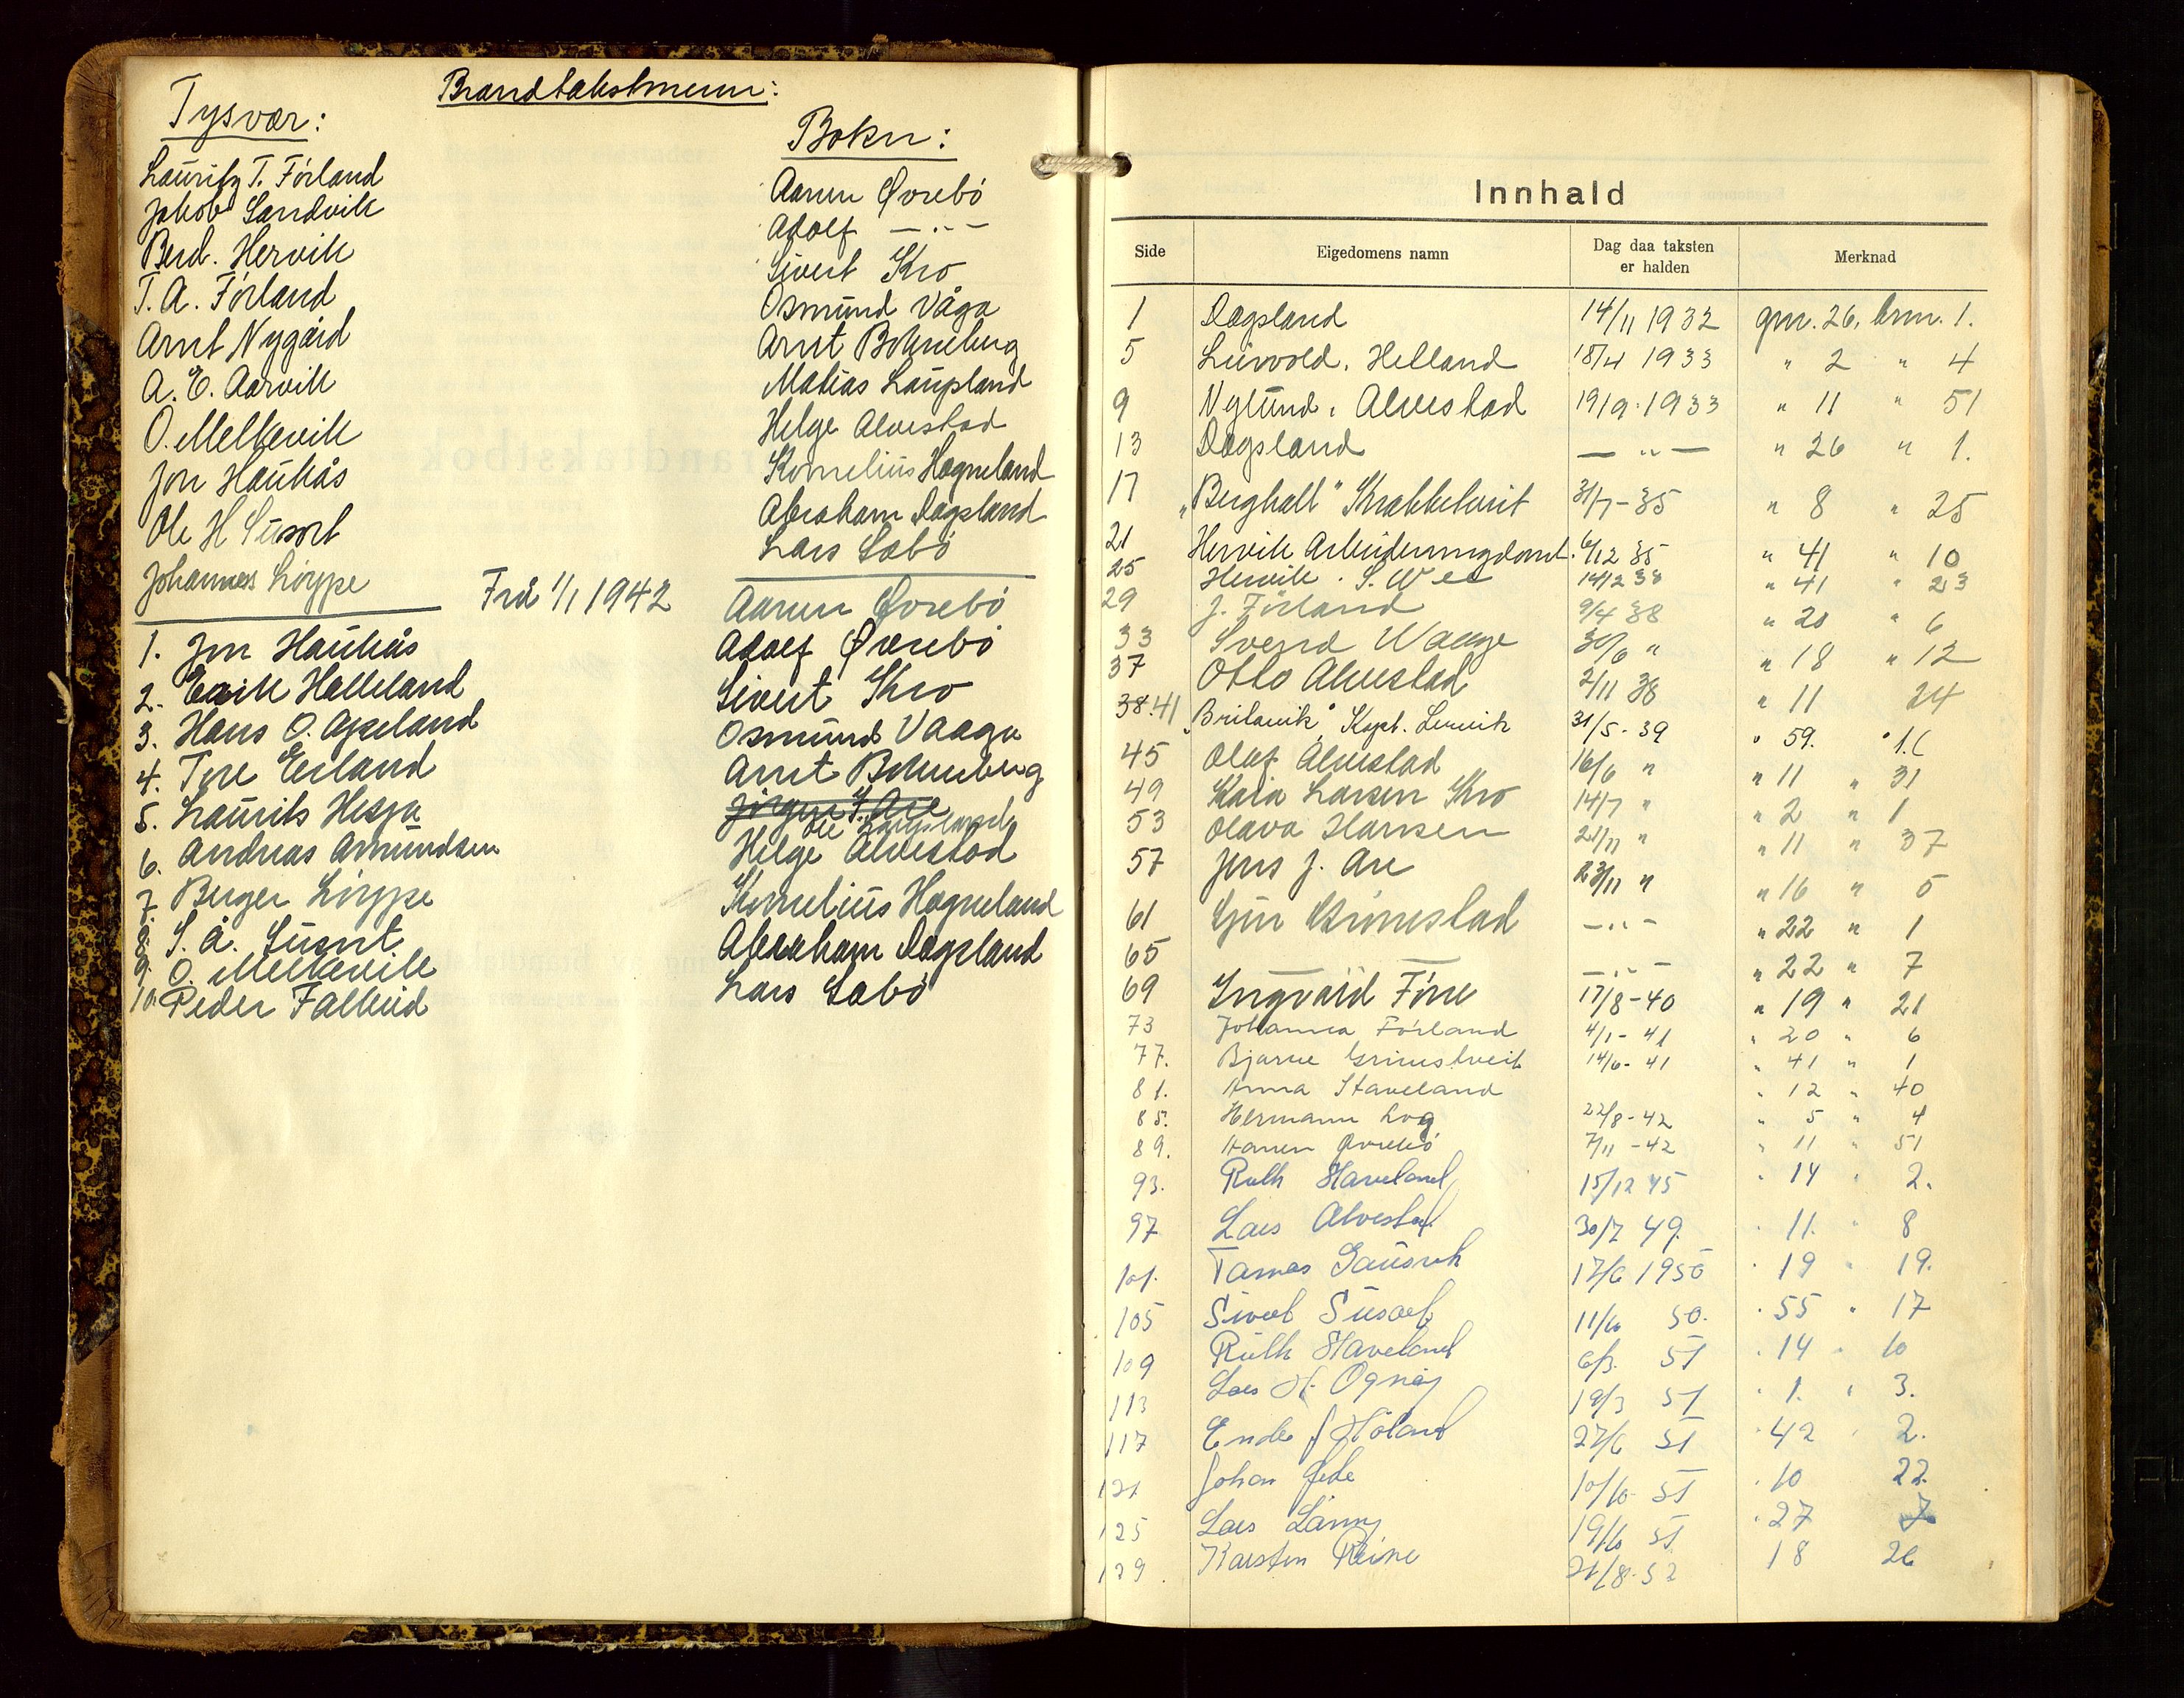 Brandtakstmenn:
Tysvær:
Lauritz T. Förland
Jakob Sandvik
Berd. Hervik
T. A. Förland
Arnt Nygård
A. E. Aarvik
O. Melkevik
Jon Haukås
Ole H Susort
Johannes Löyppe
Bokn:
Aanen Øvrebö
Adolf —〃—
Sivert Kro
Osmund Våga
Arnt Bokneberg
Matias Laupland
Helge Alvestad
Kornelius Hogneland
Abraham Dagsland
Lars Sabö
Frå 1/1 1942
1. Jon Haukås
2. Eirik Helleland
3. Hans O. Apeland
4. Tore Eirland
5. Laurits Hesja
6. Andreas Amundsen
7. Berger Löyppe
8. S. Å. Susort
9. O. Melkevik
10. Peder Falkeid
Aanen Øvrebö
Adolf Øvrebö
Sivert Kro
Osmund Vaaga
Arnt Bokneberg
Jörgen S. Are
Ole Laupland
Helge Alvestad
Kornelius Hogneland
Abraham Dagsland
Lars Sabö
Innhald
Side Eigedomens namn Dag daa taksten er halden Merknad
1 Dagsland 14/11 1932 gnr. 26, brnr. 1.
5 Leirvold, Helland 18/4 1933 " 2 " 4
9 Nylund, Alvestad 19/9 1933 " 11 " 51
13 Dagsland — " — " 26 " 1.
17 "Berghall" Krabbetveit 31/7-35 " 8 " 25
21 Hervik Arbeiderungdoml. 6/12 35 " 41 " 10
25 Hervik. S. Wee 14/2 38 " 41 " 23
29 J. Förland 9/4 38 " 20 " 6
33 Svend Waage 30/6 " " 18 " 12
37 Otto Alvestad 2/11 38 " 11 24
38.41 Kapt. Lervik 31/5-39 " 59.
45 Olaf Alvestad 16/6 " " 11 " 31
49 Kaia Larsen Kro 14/7 " " 2 " 1
53 Olava Hansen 21/11 " " 11 " 37
57 Jens J. Are 23/11 " " 16 " 5
61 Grimestad — " — " 22 " 1
65 — — " — " 22 " 7
69 Ingvald Före 17/8-40 " 19 " 21
73 Johanna Förland 4/1-41 " 20 " 6
77. Bjarne Grimstveit 14/6-41 " 41 " 1
81. Anna Staveland " 12 " 40
85. Hermann Log 22/8-42 " 5 " 4
89. Aanen Øvrebö 7/11-42 " 11 " 51
93. Ruth Staveland 15/12 45 " 14 " 2.
97 Lars Alvestad 30/7 49. " 11. " 8
101. Tarnes Gausvik 17/6 1950 " 19 " 19.
105 Sivert Susort 11/10 50. " 55 " 17
109 Ruth Staveland 6/3. 51 " 14 " 10
113 Lars H. Ognøy 19/3 51 " 1. " 3.
117 Endre J Höland 27/6 51 " 42 " 2.
121 Johan 10/10 51 " 10 22.
125 Lars 19/10 51 " 27 7
129. Karsten Reine 21/8-52 18 26